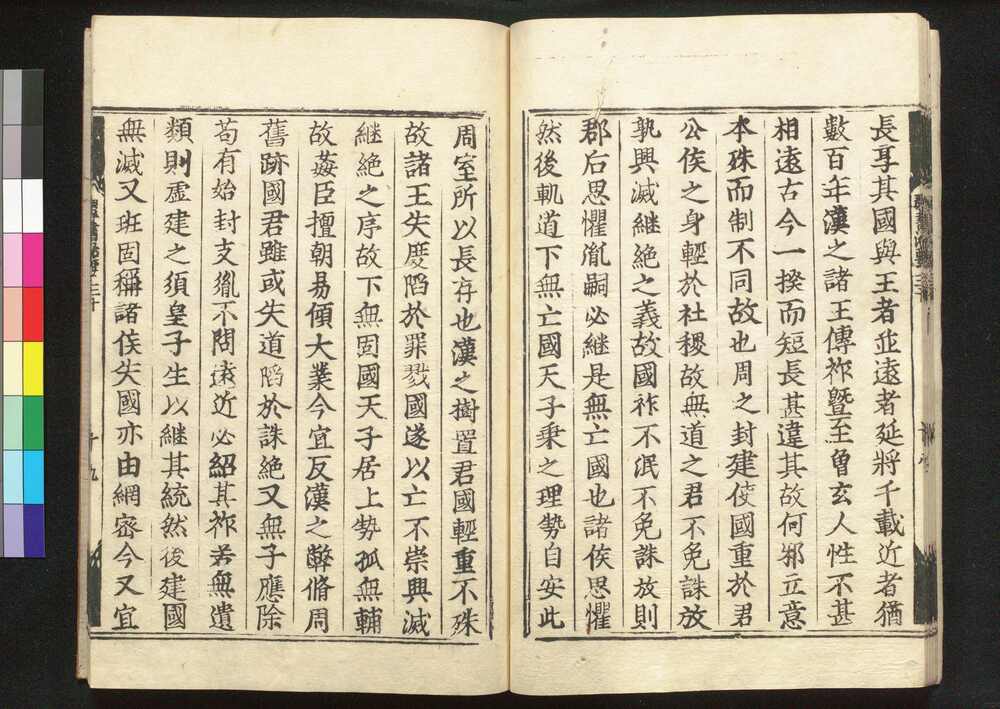 長享其國與王者並遠者延將千載近者猶
數百年漢之諸王傳祚暨至曾玄人性不甚
相遠古今一揆而短長甚違其故何邪立意
本殊而制不同故也周之封建使國重於君
公侯之身輕於社稷故無道之君不免誅放
孰興滅継絶之義故國祚不泯不免誅放則
郡后思懼胤嗣必継是無亡國也諸侯思懼
然後軌道下無亡國天子乗之理勢自安此
周室所以長存也漢之樹置君國輕重不殊
故諸王失度陷於罪戮國遂以亡不崇興滅
継絶之序故下無固國天子居上勢孤無輔
故姦臣擅朝易傾大業今宜反漢之弊脩周
舊跡國君雖或失道陷於誅絶又無子應除
苟有始封支胤不問遠近必紹其祚若無遺
類則虛建之須皇子生以継其統然後建國
無滅又班固稱諸侯失國亦由網密今又宜
十九